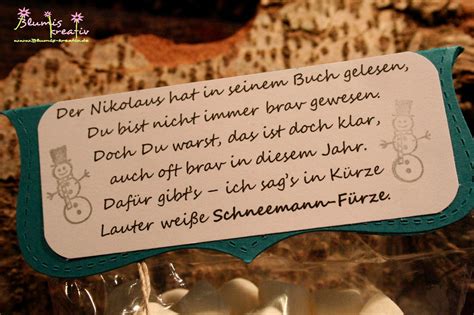 Blumis
kreativ
www.Blumis-kreativ.de
Der Nikolaus hat in seinem Buch gelesen,
Du bist nicht immer brav gewesen.
Doch Du warst, das ist doch klar,
auch oft brav in diesem Jahr.
Dafür gibt's – ich sag's in Kürze
Lauter weiße Schneemann-Fürze.